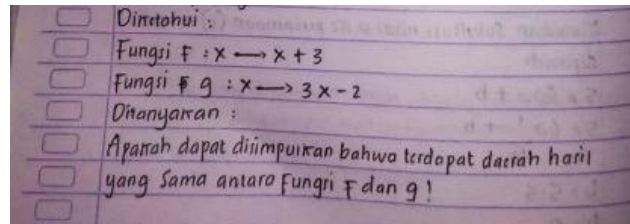 Diketahui :
Fungsi F : x → x + 3
Fungsi g : x → 3x - 2
Ditanyakan :
Apakah dapat disimpulkan bahwa terdapat daerah hasil
yang sama antara Fungsi F dan g !